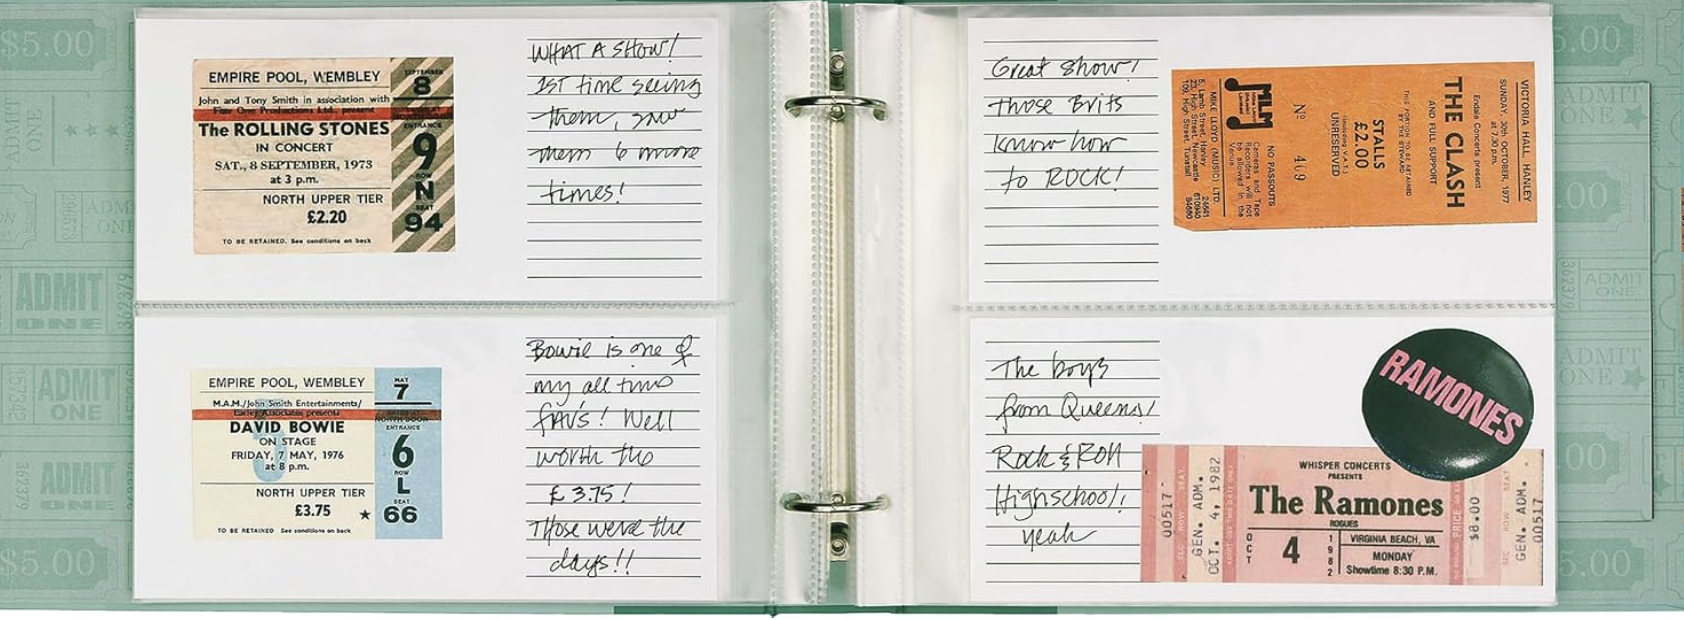 EMPIRE POOL, WEMBLEY
John and Tony Smith in association with
Five One Productions Ltd., present
The ROLLING STONES
IN CONCERT
SAT., 8 SEPTEMBER, 1973
at 3 p.m.
NORTH UPPER TIER
£2.20
TO BE RETAINED. See conditions on back
SEPTEMBER
8
ENTRANCE
9
ROW
N
SEAT
94
WHAT A SHOW!
1ST time seeing
them, saw
them 6 more
times!
EMPIRE POOL, WEMBLEY
M.A.M./John Smith Entertainments/
Earley Associates presents
DAVID BOWIE
ON STAGE
FRIDAY, 7 MAY, 1976
at 8 p.m.
NORTH UPPER TIER
£3.75
TO BE RETAINED See conditions on back
MAY
7
NORTH DOOR
ENTRANCE
6
ROW
L
SEAT
★ 66
Bowie is one of
my all time
FAV'S! Well
worth the
£3.75!
Those were the
days!!
Great show!
Those Brits
know how
to ROCK!
VICTORIA HALL, HANLEY
SUNDAY, 30th OCTOBER, 1977
at 7.30 p.m.
Endale Concerts present
THE CLASH
AND FULL SUPPORT
THIS PORTION TO BE RETAINED
BY THE STEWARD
STALLS
£2.00
(including V.A.T.)
UNRESERVED
Nº 409
NO PASSOUTS
Cameras and Tape
Recorders will not
be allowed in the
Venue
MLM
MIKE LLOYD (MUSIC) LTD.
5, Lamb Street, Hanley 24641
23, High Street, Newcastle 610940
109, High Street, Tunstall 84660
The boys
from Queens!
Rock & Roll
Highschool!
yeah
RAMONES
00517
SEC ROW SEAT
GEN. ADM.
OCT. 4, 1982
WHISPER CONCERTS
PRESENTS
The Ramones
ROGUES
OCT
4
1982
VIRGINIA BEACH, VA
MONDAY
Showtime 8:30 P.M.
PRICE
$8.00
SEC ROW SEAT
GEN. ADM.
00517
$5.00
ADMIT
ONE
ADMIT
ONE
362379
ADMIT
ONE
ADMIT
ONE
362379
$5.00
5.00
ADMIT
ONE
.00
362379
ADMIT
ONE
ADMIT
ONE
.00
5.00